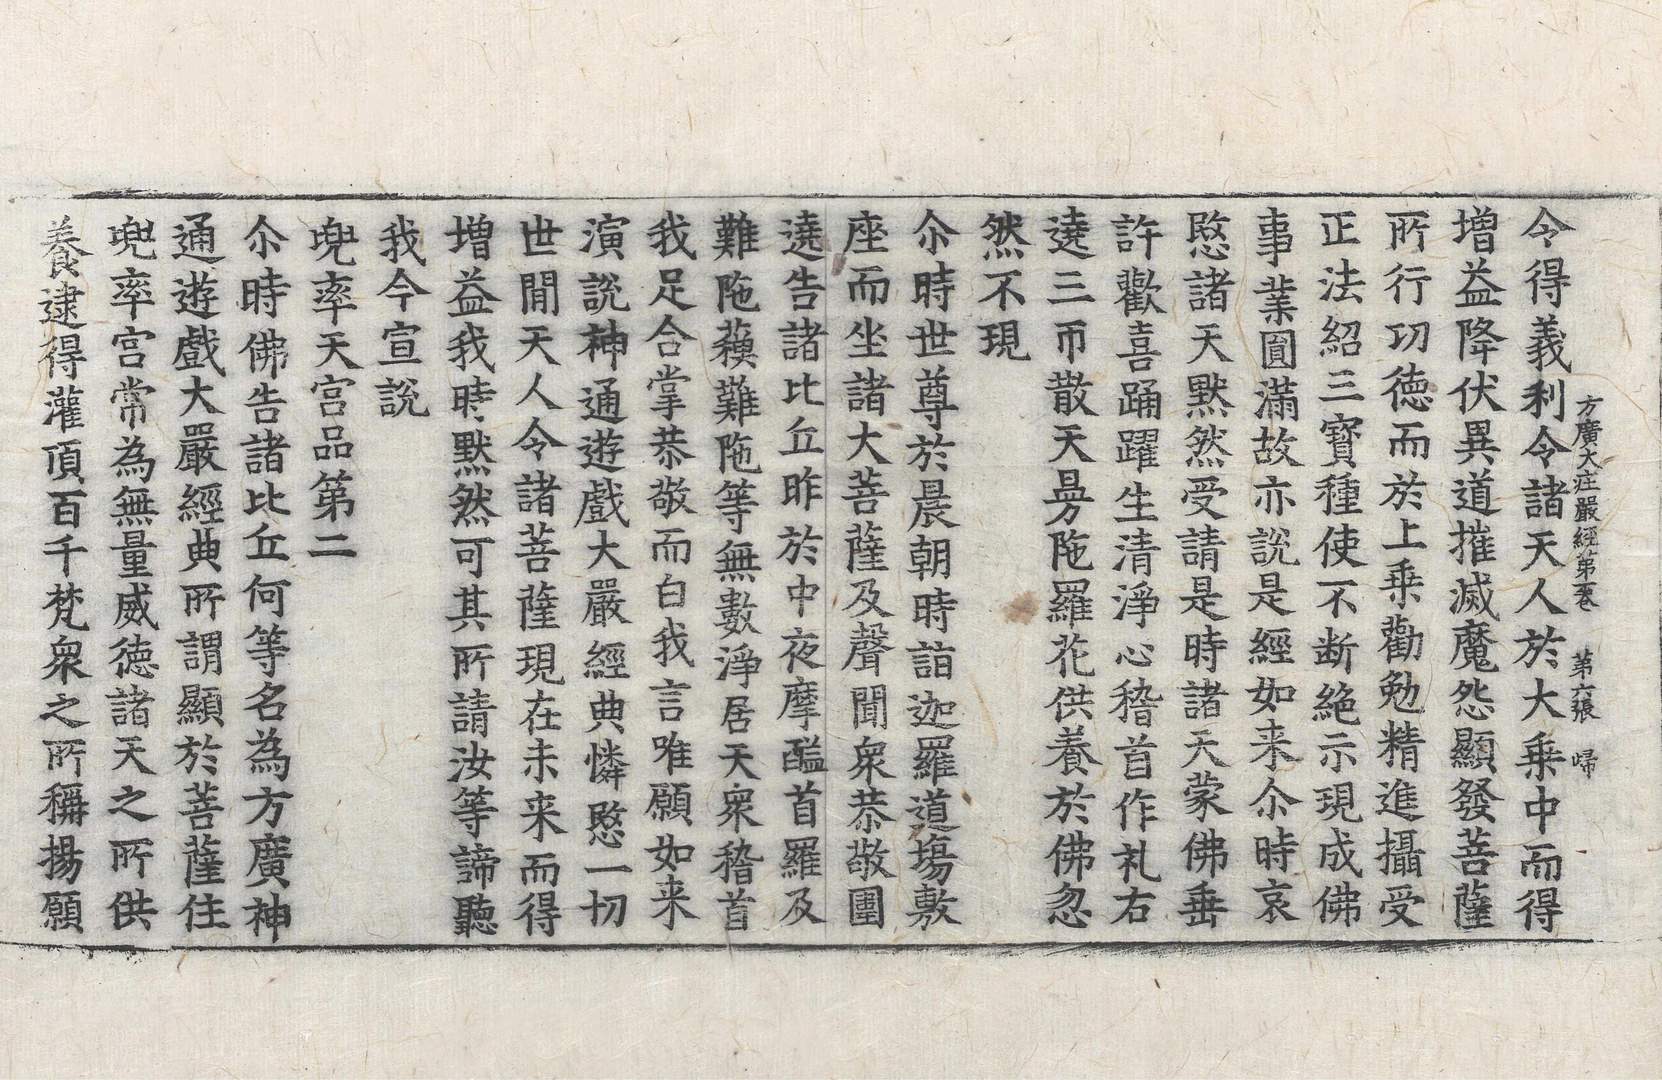 方廣大莊嚴經第一卷 第六張 歸
令得義利令諸天人於大乗中而得
增益降伏異道摧滅魔怨顯發菩薩
所行功德而於上乗勸勉精進攝受
正法紹三寶種使不断絶示現成佛
事業圓滿故亦說是經如来尒時哀
愍諸天默然受請是時諸天蒙佛垂
許歡喜踊躍生清淨心稽首作礼右
遶三帀散天曼陁羅花供養於佛忽
然不現
尒時世尊於晨朝時詣迦羅道塲敷
座而坐諸大菩薩及聲聞衆恭敬圍
遶告諸比丘昨於中夜摩醯首羅及
難陁蘓難陁等無數淨居天衆稽首
我足合掌恭敬而白我言唯願如来
演說神通遊戲大嚴經典憐愍一切
世閒天人令諸菩薩現在未来而得
增益我時默然可其所請汝等諦聽
我今宣說
兜率天宮品第二
尒時佛告諸比丘何等名為方廣神
通遊戲大嚴經典所謂顯於菩薩住
兜率宮常為無量威德諸天之所供
養逮得灌頂百千梵衆之所稱揚願